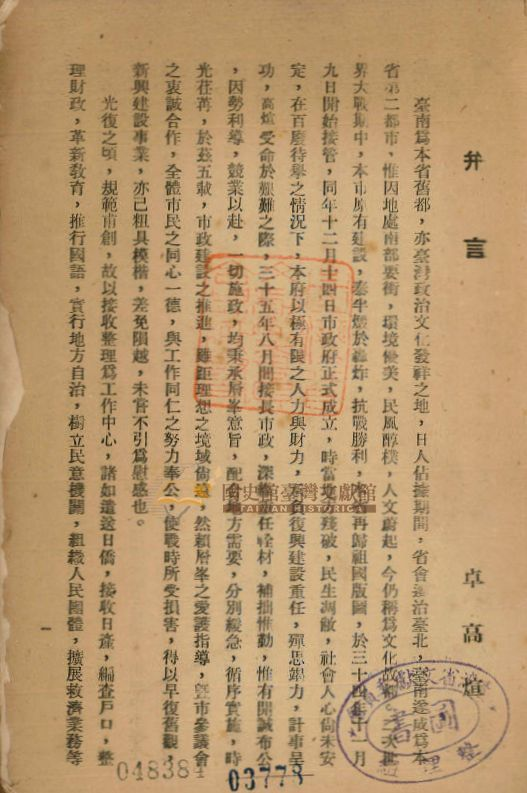 弁言
卓高煊
臺南爲本省舊都，亦臺灣政治文化發祥之地，日人佔據期間，省會遷治臺北，臺南遂成爲本
省第二都市，惟因地處南部要衝，環境優美，民風醇樸，人文蔚起，今仍稱爲文化故都。二次世
界大戰期中，本市原有建設，泰半燬於轟炸，抗戰勝利，再歸祖國版圖，於三十四年十一月
九日開始接管，同年十二月十四日市政府正式成立，時當殘破，民生凋敝，社會人心尙未安
定，在百廢待舉之情況下，本府以極有限之人力與財力，負復興建設重任，殫思竭力，計事呈
功，高煊受命於艱難之際，三十五年八月間接長市政，深任輇材，補拙惟勤，惟有開誠布公
，因勢利導，競業以赴，一切施政，均秉承層峯意旨，配地方需要，分別緩急，循序實施，時
光荏苒，於茲五載，市政建設之推進，雖距理想之境域尙遠，然賴層峯之愛護指導，曁市參議會
之衷誠合作，全體市民之同心一德，與工作同仁之努力奉公，使戰時所受損害，得以早復舊觀，
新興建設事業，亦已粗具模楷，差免隕越，未嘗不引爲慰感也。
光復之頃，規範甫創，故以接收整理爲工作中心，諸如遣送日僑，接收日產，編查戶口，整
理財政，革新敎育，推行國語，實行地方自治，樹立民意機關，組織人民團體，擴展救濟業務等
一
國史館臺灣文獻館
TAIWAN HISTORICA
圖書
整理
048384
03778